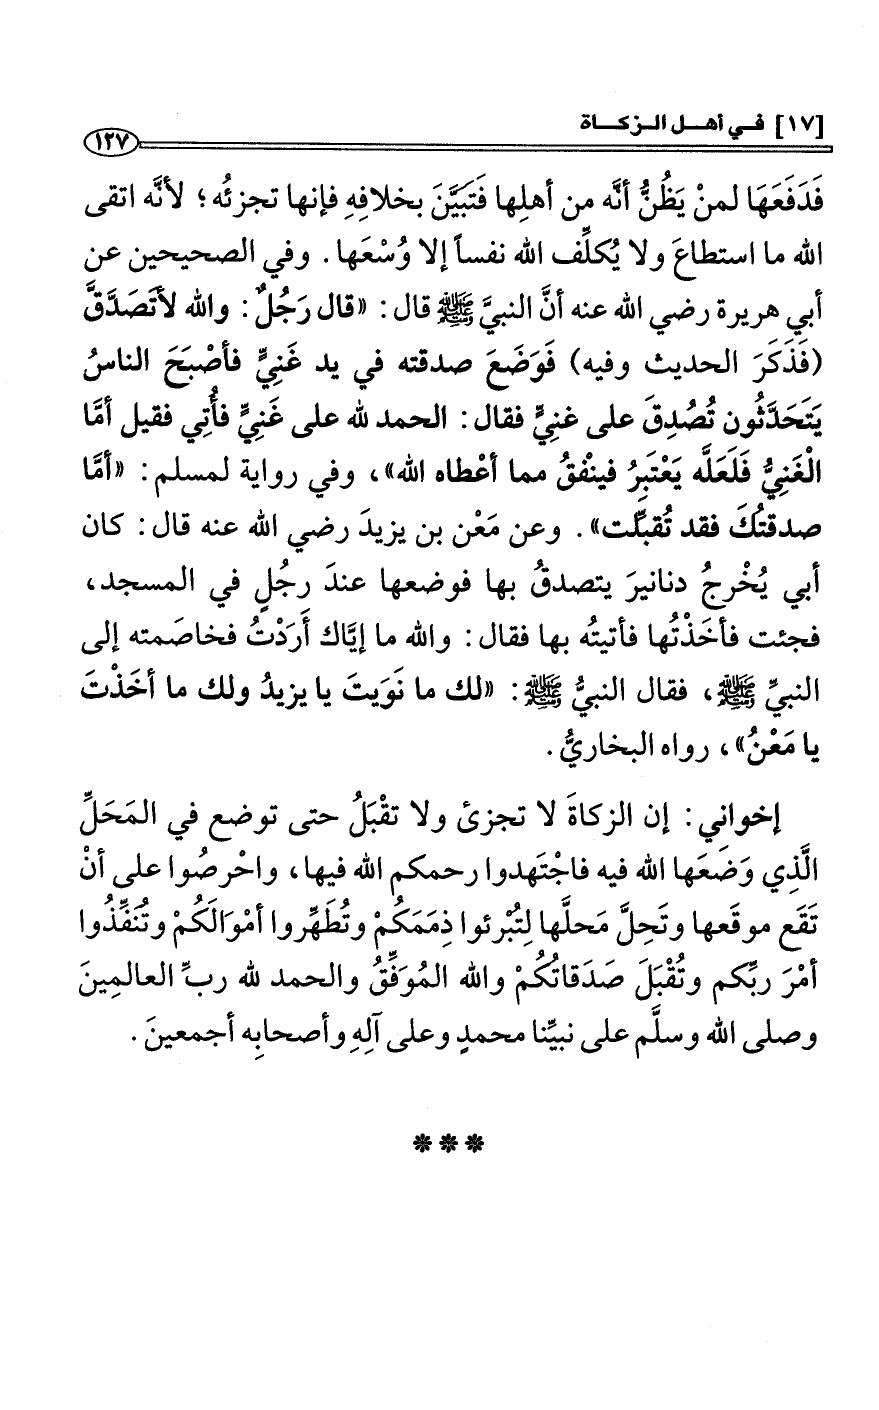 [١٧] فـي أهــل الـزكـــاة
١٢٧
فَدَفَعَهَا لمنْ يَظُنُّ أنَّه من أهلِها فَتَبَيَّنَ بخلافِهِ فإنها تجزئُه؛ لأنَّه اتقى
الله ما استطاعَ ولا يُكلِّف الله نفساً إلا وُسْعَها. وفي الصحيحين عن
أبي هريرة رضي الله عنه أنَّ النبيَّ ﷺ قال: «قال رَجُلٌ: والله لأتَصَدَّقَّ
(فَذَكَرَ الحديث وفيه) فَوَضَعَ صدقته في يد غَنِيٍّ فأصْبَحَ الناسُ
يَتَحَدَّثُون تُصُدِقَ على غنِيٍّ فقال: الحمد لله على غَنِيٍّ فأُتِي فقيل أمَّا
الْغَنِيُّ فَلَعَلَّه يَعْتَبِرُ فينْفقُ مما أعْطاه الله»، وفي رواية لمسلم: «أمَّا
صدقتُكَ فقد تُقبلِّت». وعن مَعْن بن يزيدَ رضي الله عنه قال: كان
أبي يُخْرجُ دنانيرَ يتصدقُ بها فوضعها عندَ رجُلٍ في المسجد،
فجئت فأخَذْتُها فأتيتُه بها فقال: والله ما إيَّاك أَرَدْتُ فخاصَمته إلى
النبيِّ ﷺ، فقال النبيُّ ﷺ: «لك ما نَوَيتَ يا يزيدُ ولك ما أخَذْتَ
يا مَعْنُ»، رواه البخاريُّ.
إخواني: إن الزكاةَ لا تجزئ ولا تقْبَلُ حتى توضع في المَحَلِّ
الَّذِي وَضَعَها الله فيه فاجْتَهدوا رحمكم الله فيها، واحْرصُوا على أنْ
تَقَع موقعَها وتَحِلَّ مَحلَّها لِتُبْرئوا ذِمَمَكُمْ وتُطَهِّروا أمْوَالَكُمْ وتُنَفِّذُوا
أمْرَ ربِّكم وتُقْبَلَ صَدَقاتُكُمْ والله المُوَفِّقُ والحمد لله ربِّ العالمِينَ
وصلى الله وسلَّم على نبيِّنا محمدٍ وعلى آلِهِ وأصحابِه أجمعينَ.
***